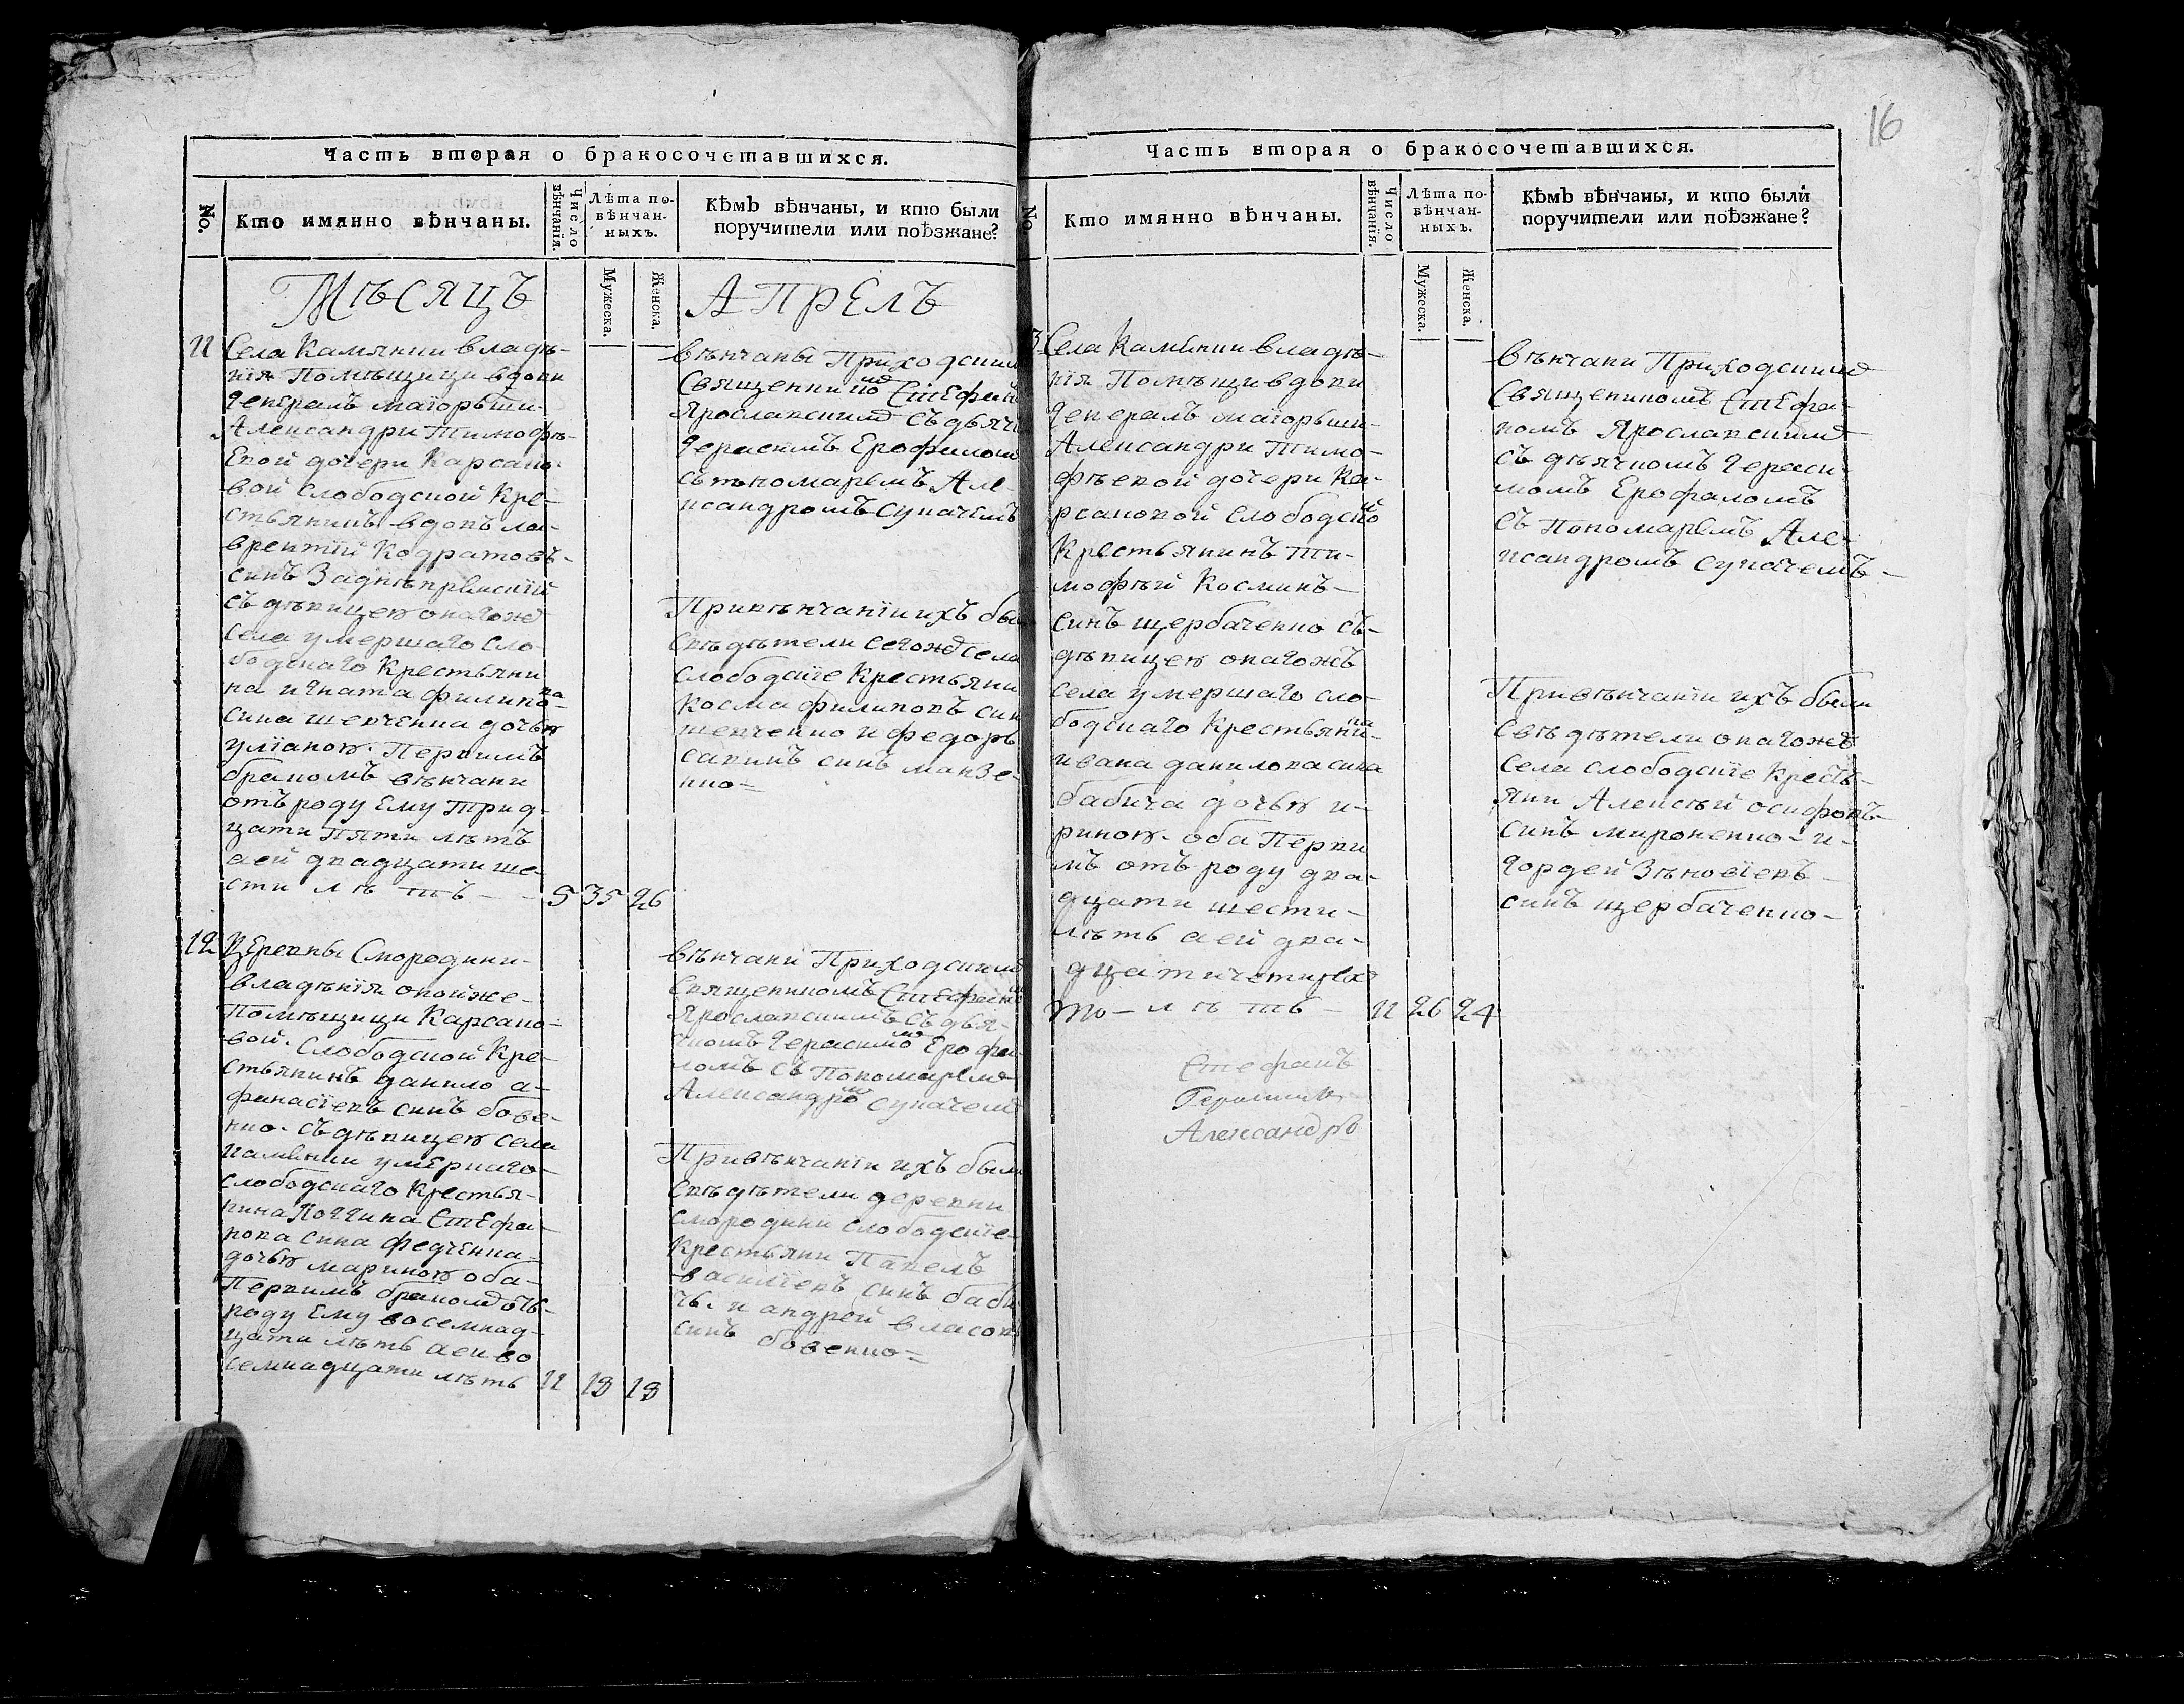 16
Часть вторая о бракосочетавшихся.
No.
Кто имянно вѣнчаны.
Число вѣнчанія.
Лѣта по-
вѣнчан-
ныхъ.
Кѣмъ вѣнчаны, и кто были
поручители или поѣзжане?
Мужеска.
Женска.
Мѣсяцъ Апрелъ
11
Села Камянки владѣ-
нія Помѣщици вдови
Генералъ маіорьши-
Александри Тимофѣ-
евой дочери Карсано-
вой слободской кре-
стьянинъ вдовъ ла-
врентій Кодратовъ-
синъ Заднѣпрянскій
съ дѣвицею онагожъ
села умершаго сло-
бодскаго крестьяни
на игната филипо-ва
сина шевченка дочью
уліаною. Первимъ
бракомъ вѣнчани
отъ роду Ему Трид-
цати Пяти лѣтъ
аей двадцати ше-
сти лѣтъ - - 5 35 26
вѣнчаны Приходским
Священником Стефан
Ярославским съ дьяч
Герасимъ Ерофалом
съ пономаремъ Але-
ксандромъ Сукачемъ
Привѣнчаніи ихъ бы
свѣдѣтели сегожъ села
слободскіе крестьяни
Косма филиповъ син
шевченко и федоръ
савинъ синъ манзе-
нко=
12
Деревны Смородини-
владѣнія оной же-
Помѣщици Карсано-
вой. слободской кре-
стьянинъ данило а-
фанасіевъ синъ бове-
нко. съ дѣвицею села
камянки умершаго-
слободскаго крестья-
нина Логгина Стефа-
нова сина федченка-
дочью мариною оба-
Первимъ бракомъ отъ-
роду Ему восемнад-
цати лѣтъ аей во
семнадцати лѣтъ 11 18 18
вѣнчани Приходским
Священникомъ Стефано
Ярославскимъ съ дья-
чкомъ Герасимо Ерофа-
ломъ съ Пономарем
Александро сукачем
Привѣнчаніи ихъ были
свѣдѣтели деревни
Смородини слободскіе-
крестьяни Павелъ
василіевъ синъ баби
чъ. и андрей власовъ
синъ бовенко=
Часть вторая о бракосочетавшихся.
No.
Кто имянно вѣнчаны.
Число вѣнчанія.
Лѣта по-
вѣнчан-
ныхъ.
Кѣмъ вѣнчаны, и кто были
поручители или поѣзжане?
Мужеска.
Женска.
3
Села Камянки владѣ-
нія Помѣщи вдови
Генералъ маіорьши-
Александри Тимо-
фѣевой дочери Ка-
рсановой слободско
крестьянинъ Ти-
мофѣй Косминъ-
синъ щербаченко съ-
дѣвицею онагожъ
села умершаго сло-
бодскаго крестьяни-на
ивана данилова сина
бабича дочью и-
риною. оба Перви
мъ отъ роду два-
дцати шести-
лѣтъ аей два-
дцати четирех
то- лѣтъ - 11 26 24
вѣнчани Приходским
Священикомъ Стефа-
номъ Ярославским
съ дѣячкомъ Гераси-
момъ Ерофаломъ
съ Пономаремъ Але-
ксандромъ сукачемъ-
Привѣнчаніи ихъ были
свѣдѣтели онагожъ
села слободскіе кресть-
яни Алексѣй осифовъ-
синъ мироненко- и-
гордей Зѣновіевъ-
синъ щербаченко-
Стефанъ
Герасимъ
Александръ